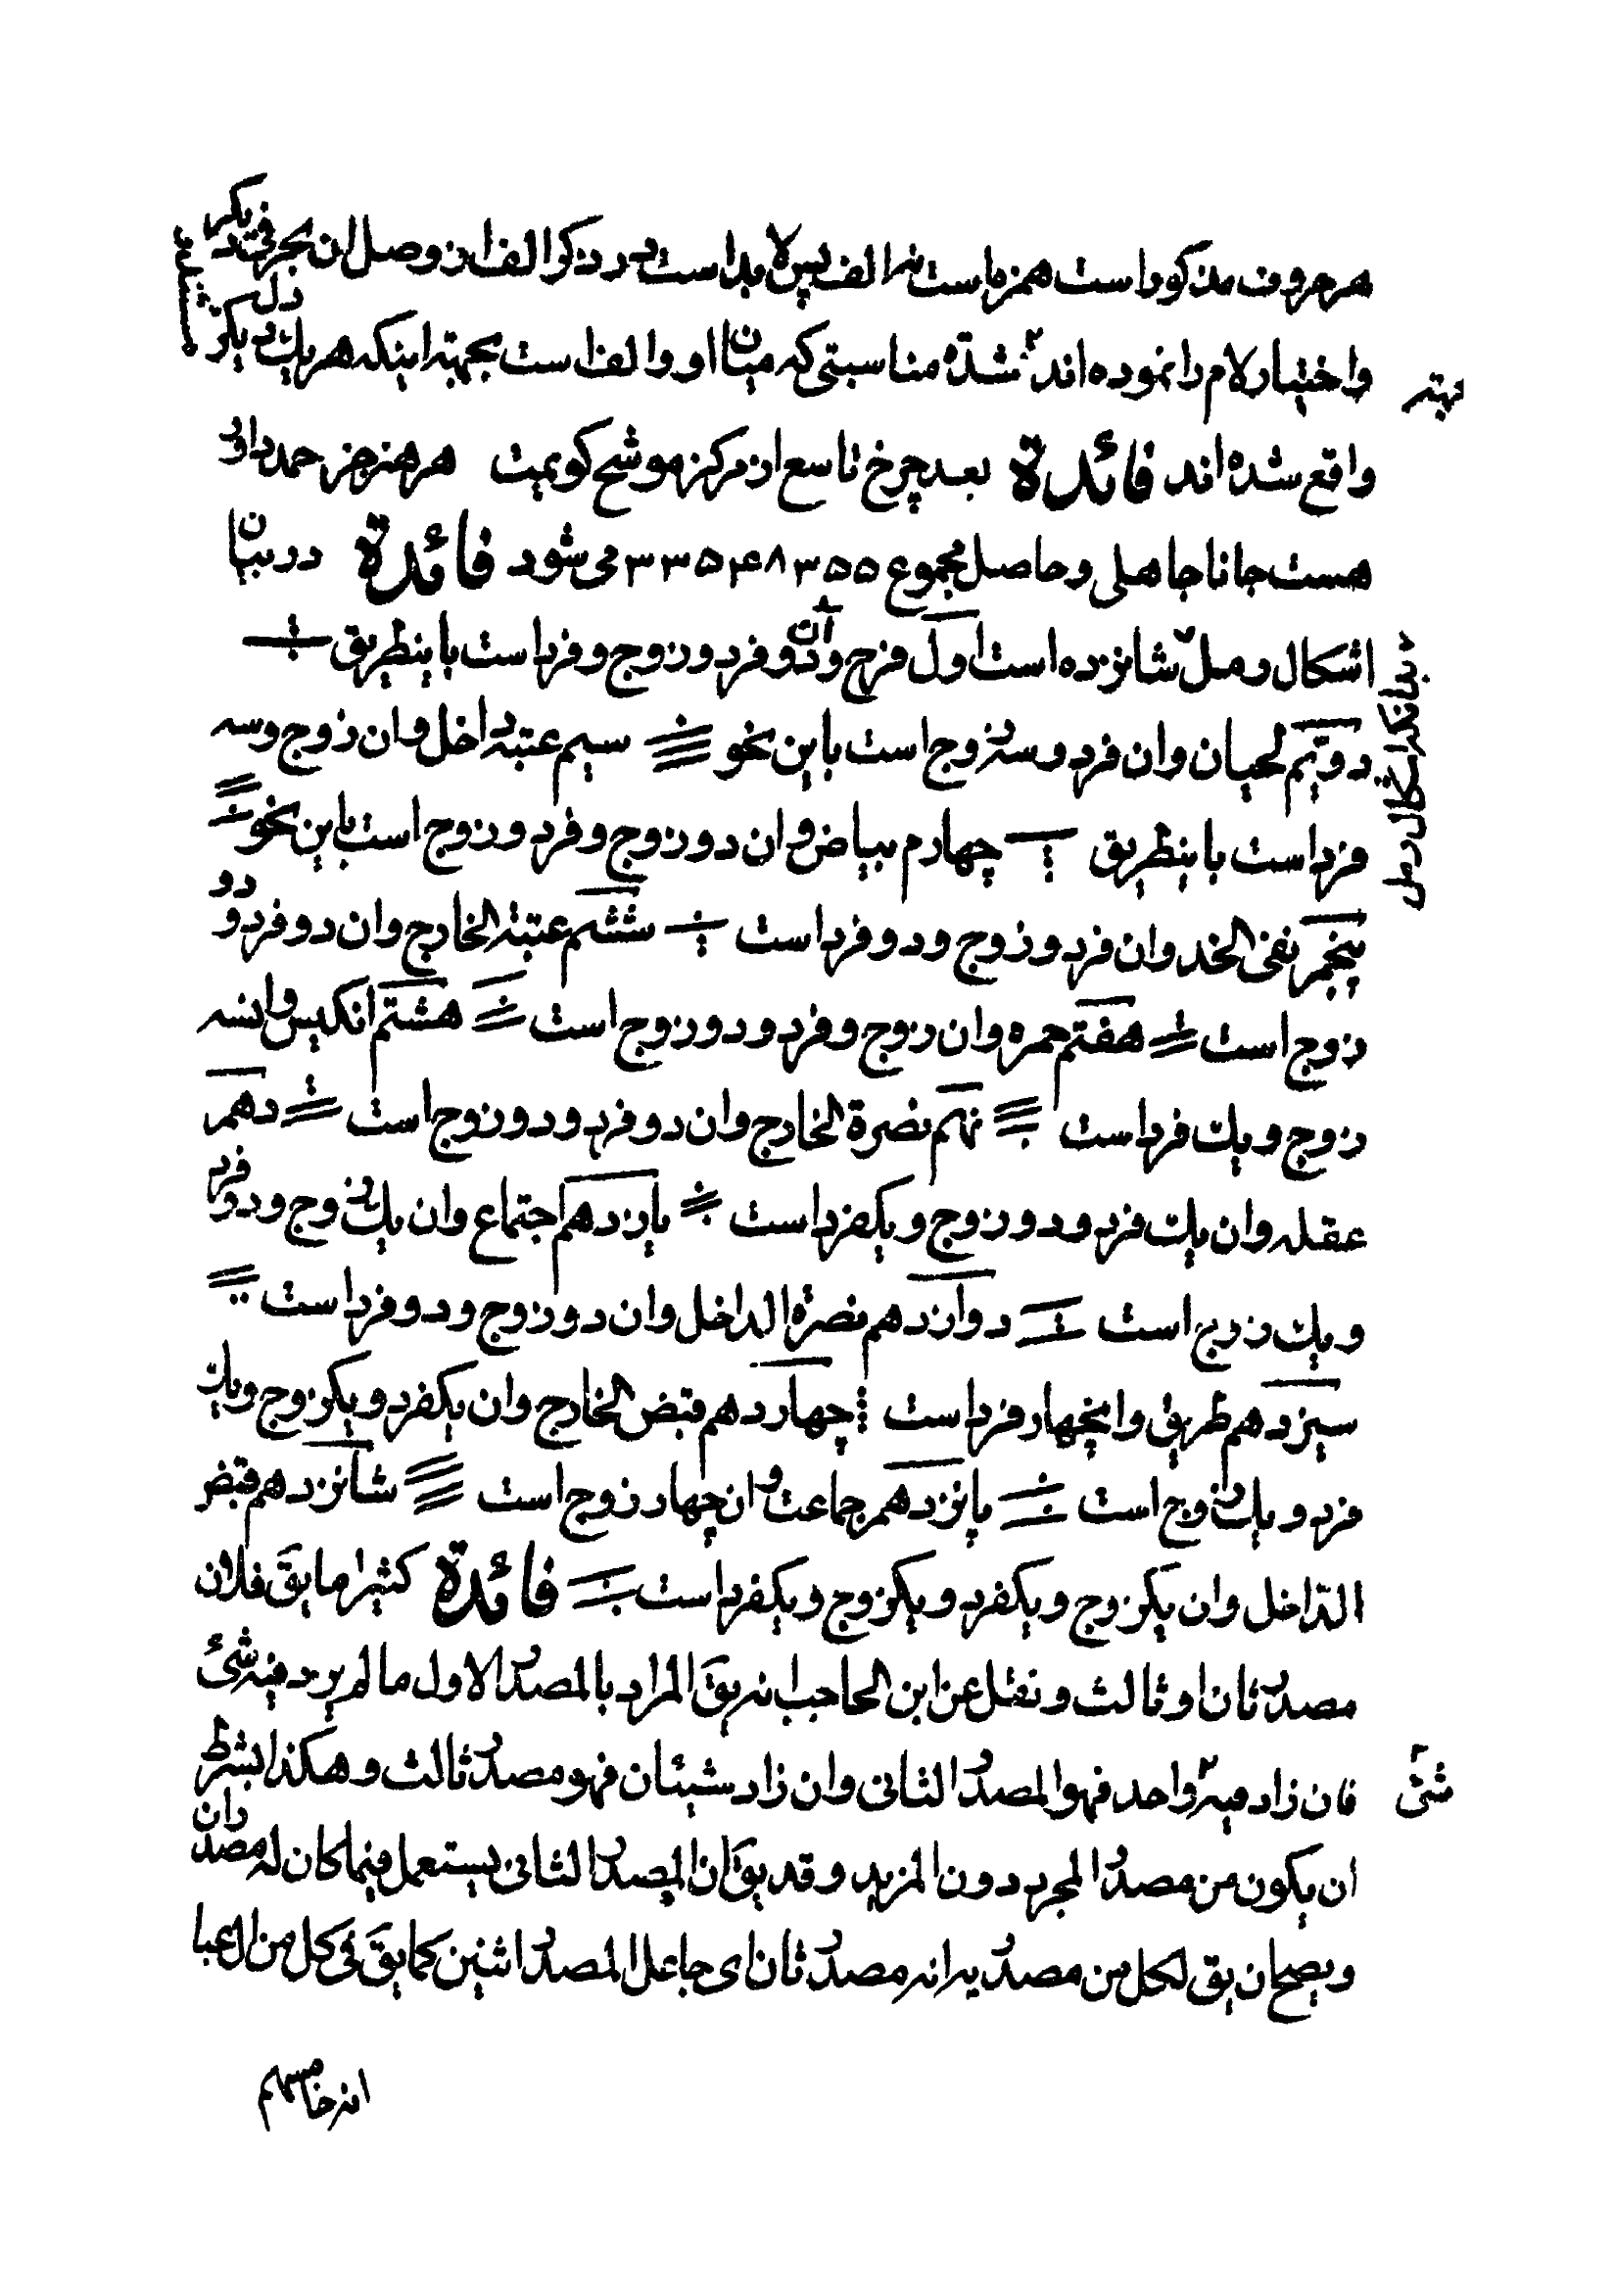 هر حروف مذکور است همزه است نه الف پس لابد است در ذکر الف از وصل ان بحرفی دیکر
واختیار لام را نموده اند نشده مناسبتی که میان او والف است بجهة اینکه هر یک دل یکر
بهتر
واقع شده اند فائدة بعد چرخ تاسع از مرکز موشح کویمت هر هنر جز حمد داور
هست جانا جاهلی وحاصل مجموع ۳۳۵۴۸۳۵۵ می شود فائدة در بیان
اشکال رمل شانزده است اول فرح وآن دو فرد وزوج وفرد است باینطریق
بیانکه اشکال رمل
دویم لحیان وان فرد وسه زوج است باین نحو سیم عتبه داخل وان زوج وسه
فرد است باینطریق چهارم بیاض وان دو زوج وفرد وزوج است باین نحو
پنجم نفی الخد وان فرد وزوج ودو فرد است ششم عتبة الخارج وان دو فرد ودو
زوج است هفتم حمره وان زوج وفرد ودو زوج است هشتم انکیس وان سه
زوج ویک فرد است نهم نصرة الخارج وان دو فرد ودو زوج است دهم
عقله وان یک فرد ودو زوج ویکفرد است یازدهم اجتماع وان یک زوج ودو فرد
ویک زوج است دوازدهم نصرة الداخل وان دو زوج ودو فرد است
سیزدهم طریق وانچهار فرد است چهاردهم قبض الخارج وان یکفرد ویکزوج ویک
فرد ویک زوج است پانزدهم جماعت وان چهار زوج است شانزدهم قبض
الداخل وان یکزوج ویکفرد ویکزوج ویکفرد است فائدة کثیرا ما یق فلان
مصدر ثان او ثالث ونقل عن ابن الحاجب انه یق المراد بالمصدر الاول ما لم یزد فیه شئ
فان زاد فیه واحد فهو المصدر الثانی وان زاد شیئان فهو مصدر ثالث وهکذا بشرط
شئ
ان یکون من مصدر المجرد دون المزید وقد یق ان المصدر الثانی یستعمل فیما کان له مصدران
ویصح ان یق لکل من مصدریه انه مصدر ثان ای جاعل المصدر اثنین کما یق فی کل من ال عبا
انه خامسهم